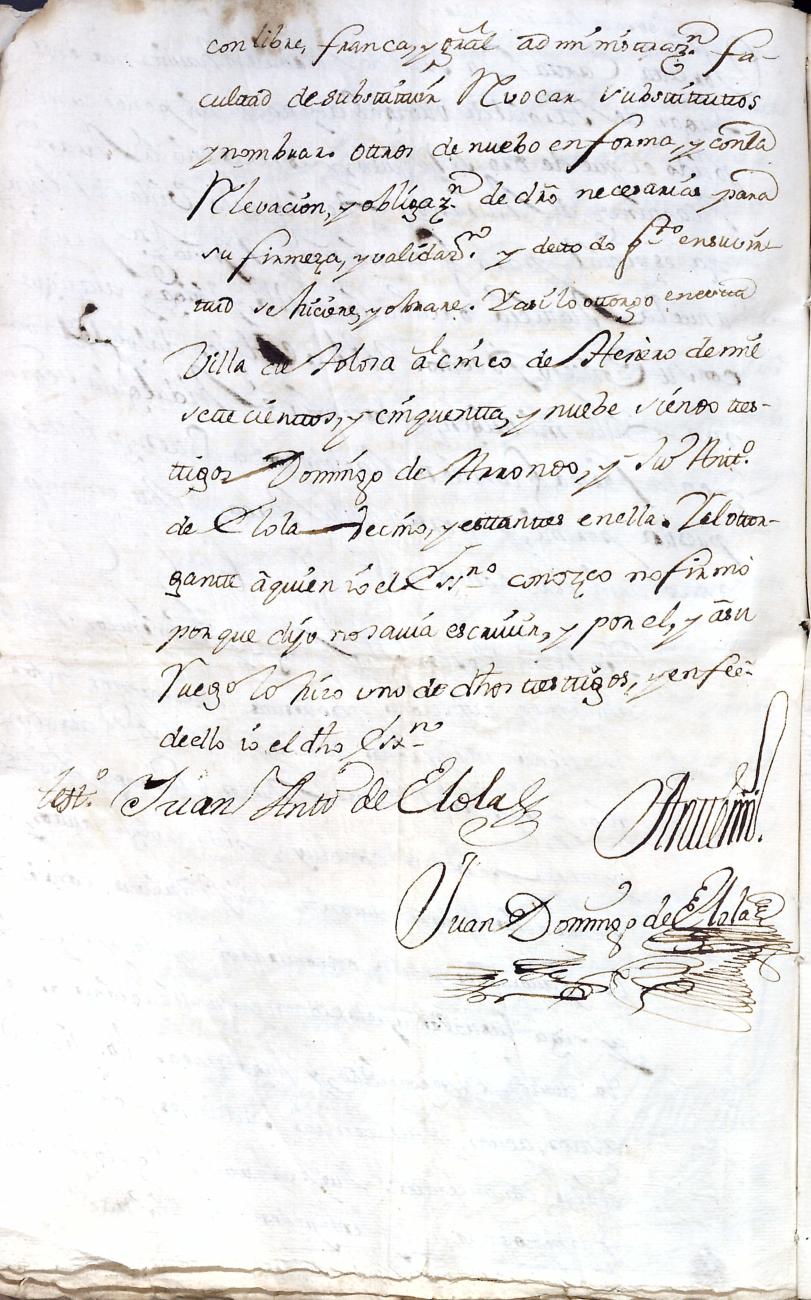 con libre, franca, y gral administraz.n fa-
cultad de substituir Revocar substitutos
y nombrar otros de nuebo en forma, y con la
Relevacion, y obligaz.n de dro necesarias para
su firmeza, y validaz.on y de todo q.to en su vir-
tud se hiciere, y obrare. Y asi lo ottorgo en esta
Villa de Tolosa a cinco de Henero de mil
settecienttos, y cinquentta, y nuebe siendo tes-
tigos Domingo de Arrondo, y Ju.n Antt.o
de Elola vecino, y estantes en ella. Y el ottor-
gantte a quien io el Ess.no conozco no firmo
porque dijo no savia escriuir, y por el, y a su
ruego lo hizo uno de dhos testtigos, y en fee
de ello io el dho Ess.no
test.o Juan Antt.o de Elola
Antte mi.
Juan Domingo de Elola